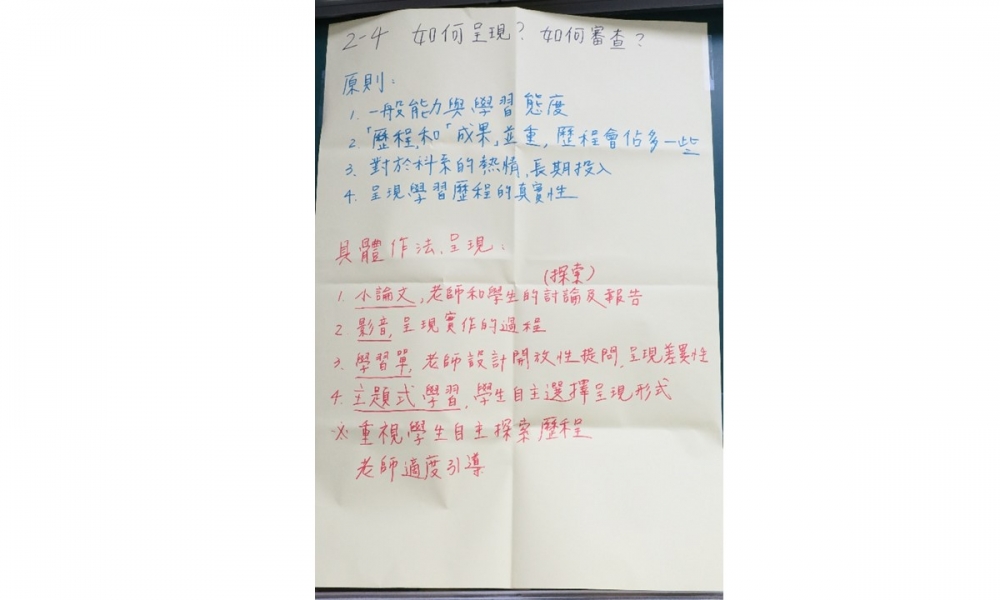 2-4 如何呈現? 如何審查?
原則:
1. 一般能力與學習態度
2. 「歷程」和「成果」並重, 歷程會佔多一些
3. 對於科系的熱情, 長期投入
4. 呈現學習歷程的真實性
具體作法、呈現:
(探索)
1. 小論文, 老師和學生的討論及報告
2 影音, 呈現實作的過程
3. 學習單, 老師設計開放性提問, 呈現差異性
4. 主題式學習, 學生自主選擇呈現形式
※ 重視學生自主探索歷程
老師適度引導